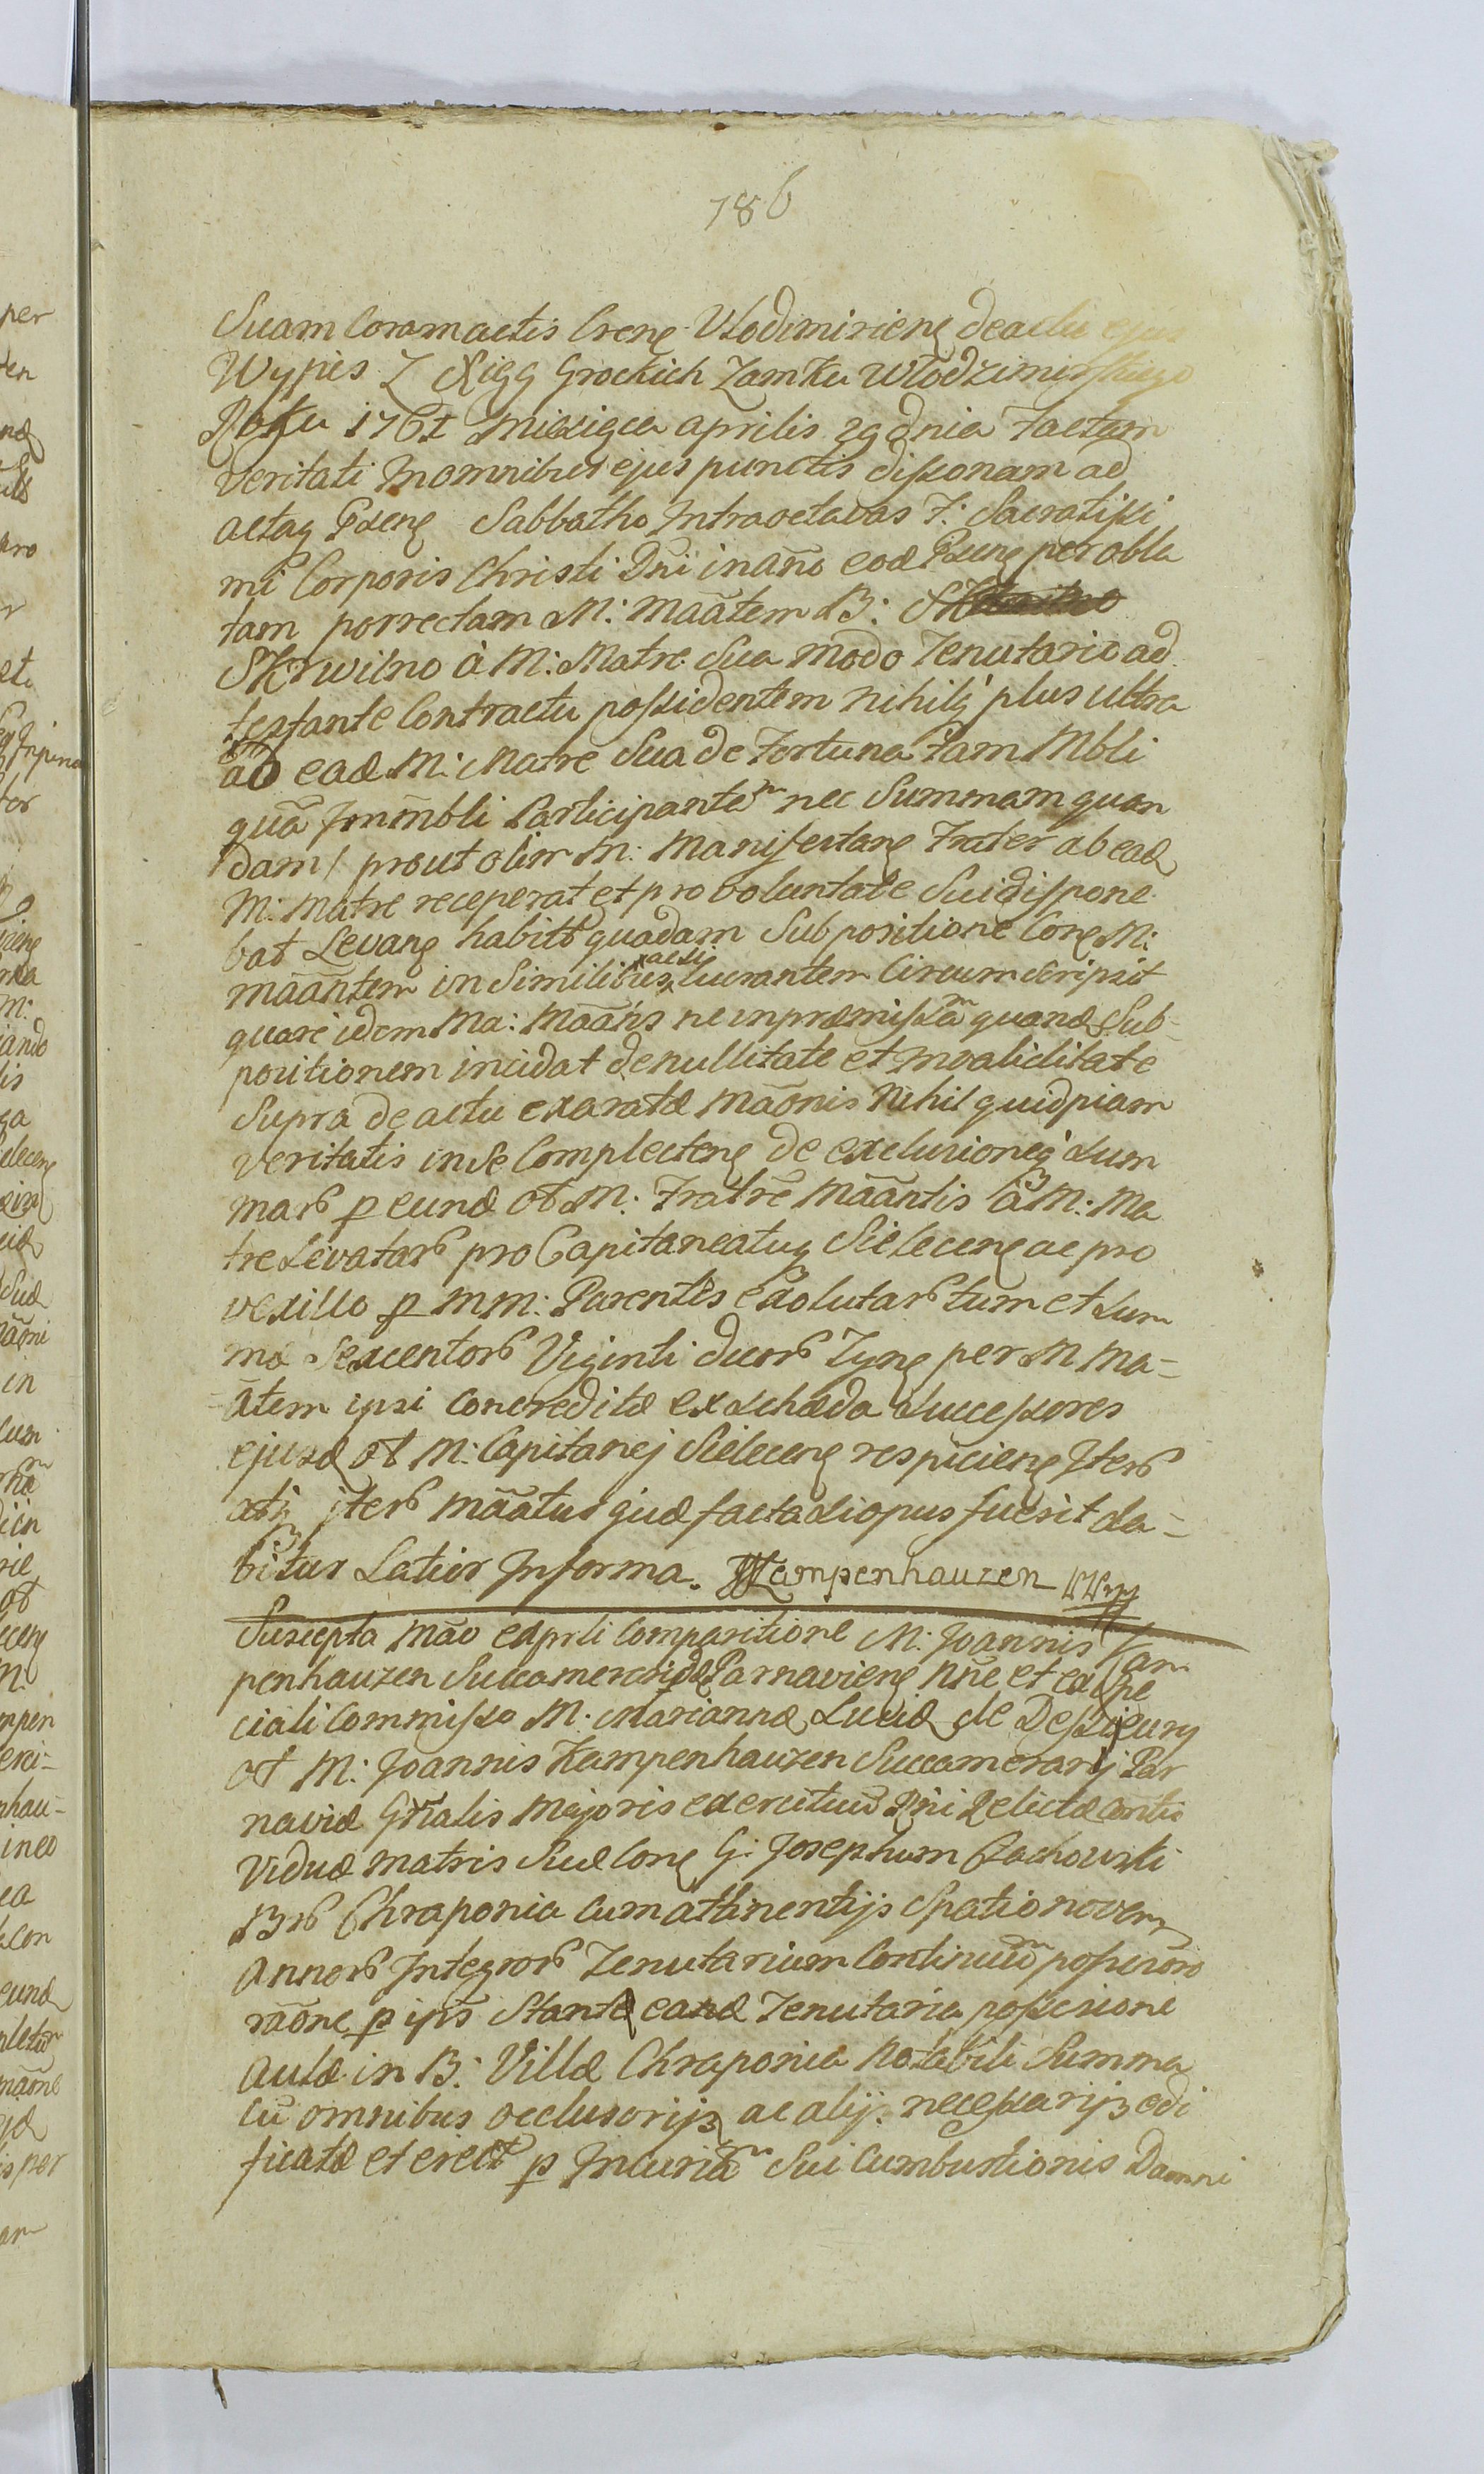 186
Suam Coram actis Crens Vlodimiriens de actu ejus
Wypis Z Xiąg Grockich Zamku Włodzimirskiego
Roku 1761 Miesiąca aprilis 29 dnia factam
veritati In omnibus ejus punctis dissonam ad
acta Pxens Sabbatho Intra octavas F: Sacratissi
mi Corporis Christi Dni in anō eod Pxens per obla
tam porrectam M: Maātem B:
Skrwilno à M: Matre Sua modo Tenutario ad
testante Contractu possidentem nihilq plus ultra
ab ead M: Matre Sua de Fortuna tam Mbli
quā Immbli Participantem nec Summam quan
dam / prout olim M: Manifestans Frater ab ead
M: Matre receperat et pro voluntate Sui dispone
bat Levans habitt quadam Subpositione Cons M:
māāntem in Similibus actis lucrantem Circumscripsit
quare idem Ma: Māāns ne in præmissam quand Sub-
positionem incidat de nullitate et Invaliditate
Supra de actu exaratæ māonis Nihil quidpiam
veritatis in Se Complectens de exclusioneq Sum
marƄ p eund ol M: Fratre māantis à M: Ma
tre LevatarƄ pro Capitaneatu Sielecens ac pro
vexillo p MM: Parentes exolutarƄ tum et Sum
mæ SexcentorƄ Viginti duorƄ Tyns per M Ma-
ātem ipsi Concreditæ ex Scheda Successores
ejusd ol M: Capitanej Sielecens respiciens IterƄ
atq iterƄ māatus quæ facta Si opus fuerit da-
bitur Latior Informa. JKampenhauzen mp
Suscepta māo exprli Comparitione M: Joannis Kam
penhauzen Succameraridæ Parnaviens nñe et ex spe
ciali Commisso M: Mariannæ Luciæ de
ol M: Joannis Kampenhauzen Succamerarij Par
naviæ Gñralis Majoris exercituū Rni Relictæ
Viduæ Matris Suæ Cons G: Josephum Czachowski
BrƄ Chraponia cum attinentijs Spatio novem
AnnorƄ IntegrorƄ Tenutarium Continuū possesorō
rāone p ips Stante eand Tenutaria possesione
Aulæ in B: Villæ Chraponia notabili Summa
cū omnibus occlusorijs ac alij: necessarijs edi
ficatæ et erect p Incuriam Sui Cumbustionis Damni